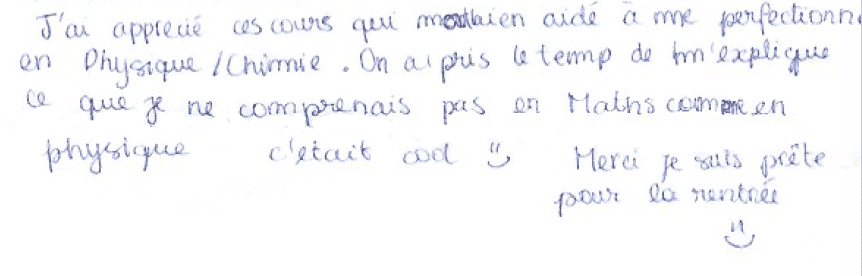 J'ai apprecié ces cours qui m'ontaien aidé à me perfectionn
en Physique/Chimie. On a pris le temp de m'explique
ce que je ne comprenais pas en Maths comme en
physique c'était cool Merci je suis prête
pour la rentrée